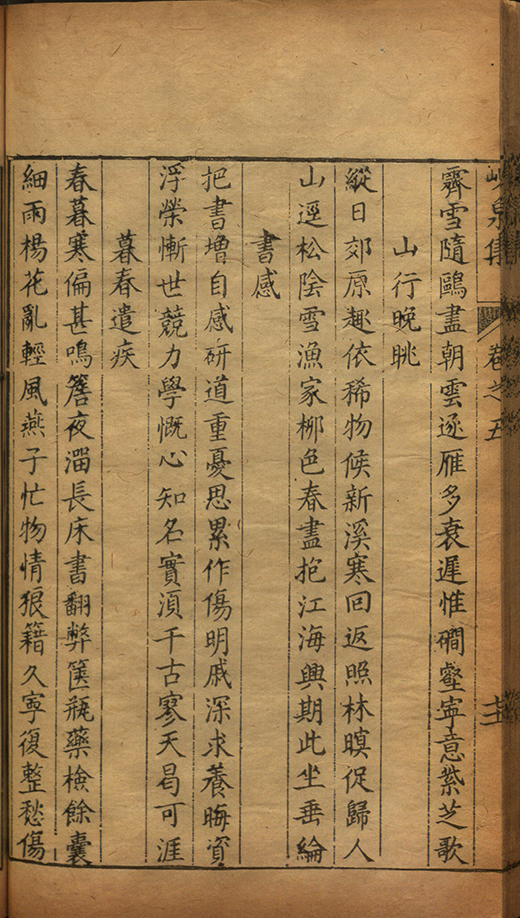 峴泉集
卷之五
霽雪隨鷗盡朝雲逐雁多衰遲惟磵壑寧意紫芝歌
山行晚眺
縱日郊原趣依稀物候新溪寒回返照林暝促歸人
山逕松陰雪漁家柳色春盡抱江海興期此坐垂綸
書感
把書增自感研道重憂思累作傷明戚深求養晦資
浮榮慚世競力學慨心知名實湏千古寥天曷可涯
暮春遣疾
春暮寒偏甚鳴簷夜溜長床書翻弊篋甁藥檢餘囊
細雨楊花亂輕風燕子忙物情狠籍久寧復整愁傷